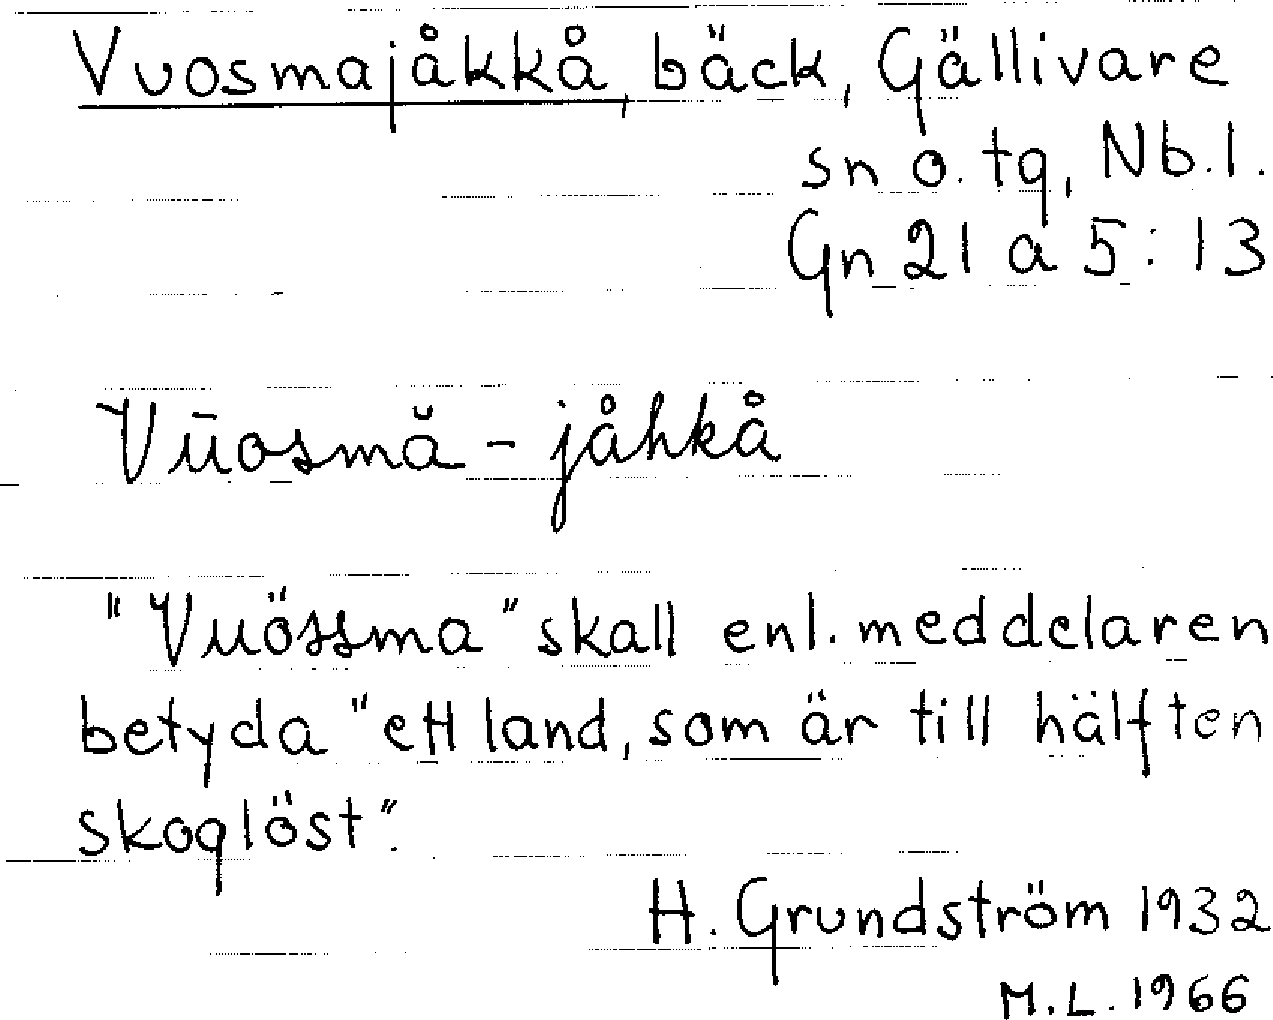 Vuosmajåkkå, bäck, Gällivare
sn o. tg, Nb.l.
Gn 21 a 5:13
Vūosmă-jåhkå
"Vuössma" skall enl. meddelaren
betyda "ett land, som är till hälften
skoglöst".
H. Grundström 1932
M.L. 1966